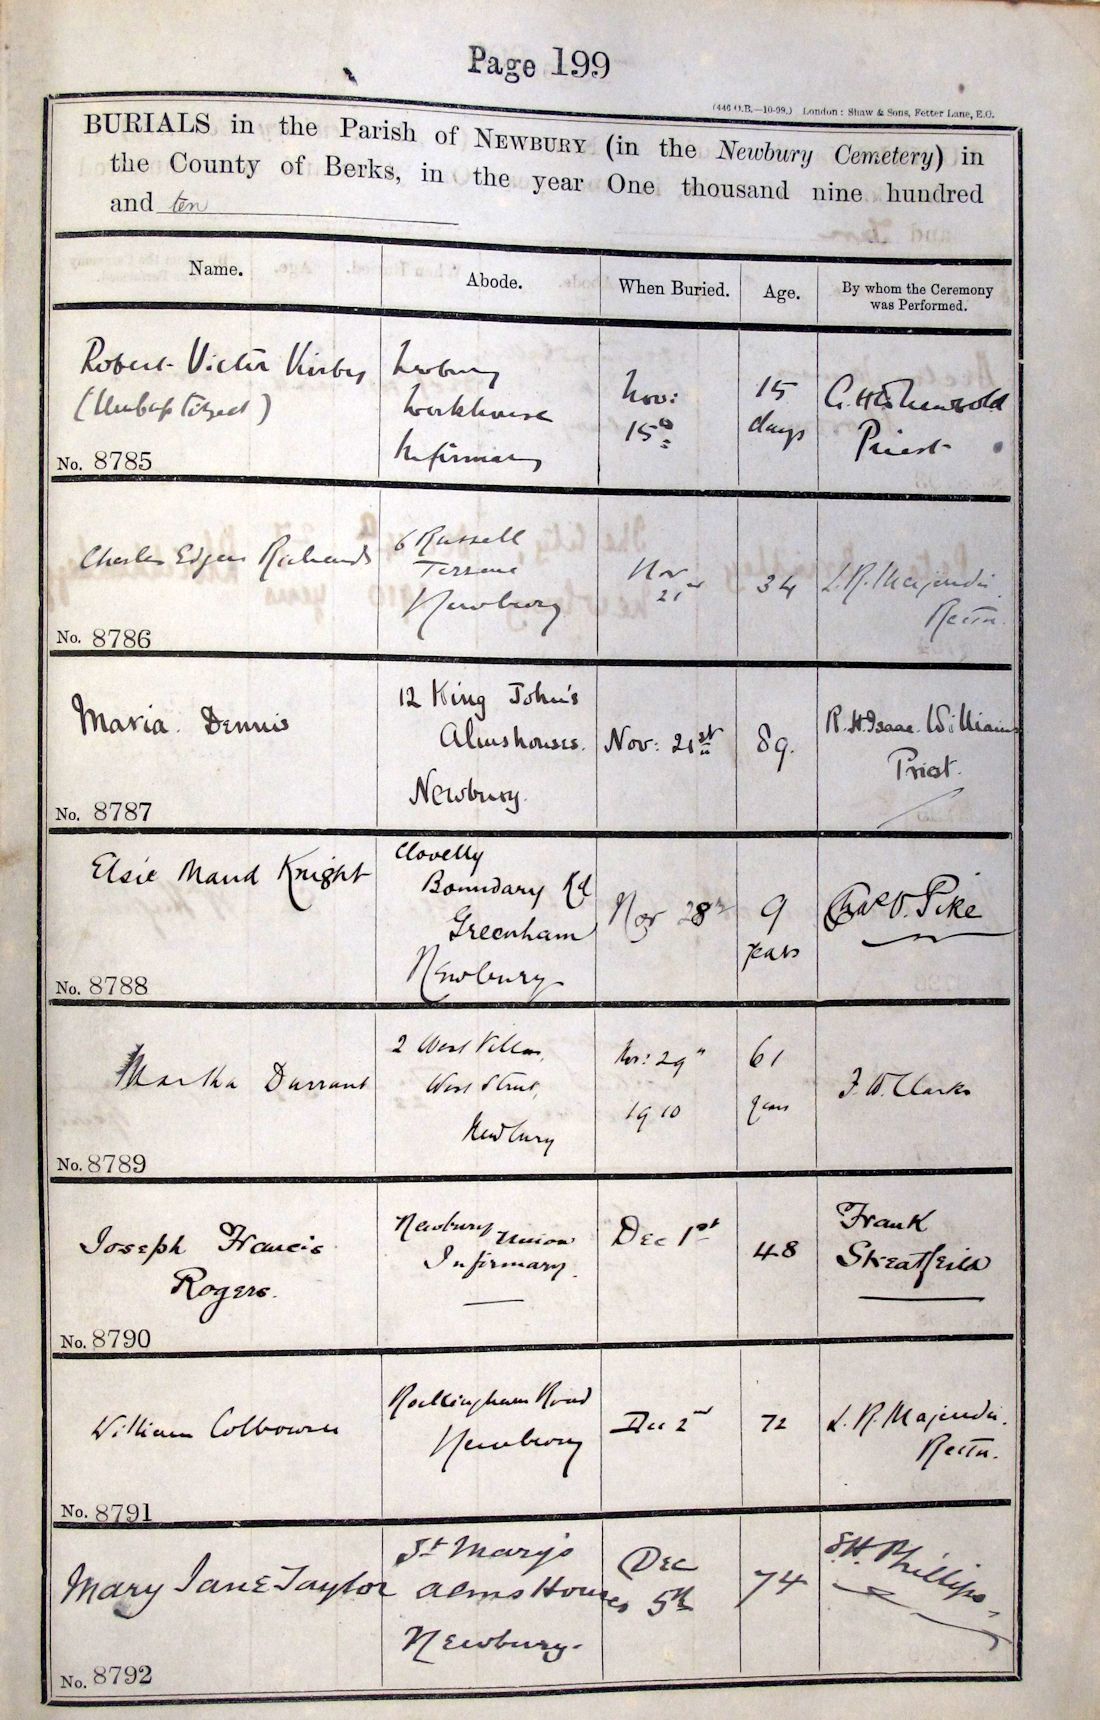 Page 199
(446 O.B.—10-99.) London: Shaw & Sons, Fetter Lane, E.C.
BURIALS in the Parish of NEWBURY (in the Newbury Cemetery) in
the County of Berks, in the year One thousand nine hundred
and ten
Name.
Abode.
When Buried.
Age.
By whom the Ceremony
was Performed.
Robert Victor Kirby
(Unbaptized)
No. 8785
Newbury
Workhouse
Infirmary
Nov:
15th
15
days
Priest
Charles Edgar Richards
No. 8786
6 Russell
Terrace
Newbury
Nov
21st
34
L. R. Majendie.
Rector.
Maria. Dennis
No. 8787
12 King John's
Almshouses.
Newbury.
Nov: 21st
89.
R. H. Isaac Williams
Priest.
Elsie Maud Knight
No. 8788
Clovelly
Boundary Rd
Greenham
Newbury
Nov 28th
9
years
Pike
Martha Durrant
No. 8789
2 West Villas,
West Street,
Newbury
Nov: 29th
1910
61
years
F. W. Clarke
Joseph Francis
Rogers.
No. 8790
Newbury Union
Infirmary.
Dec 1st
48
Frank
Streatfeild
William Colbourne
No. 8791
Rockingham Road
Newbury
Dec 2nd
72
L. R. Majendie.
Rector.
Mary Jane Taylor
No. 8792
St Mary's
Alms Houses
Newbury.
Dec
5th
74
S. H. Phillips